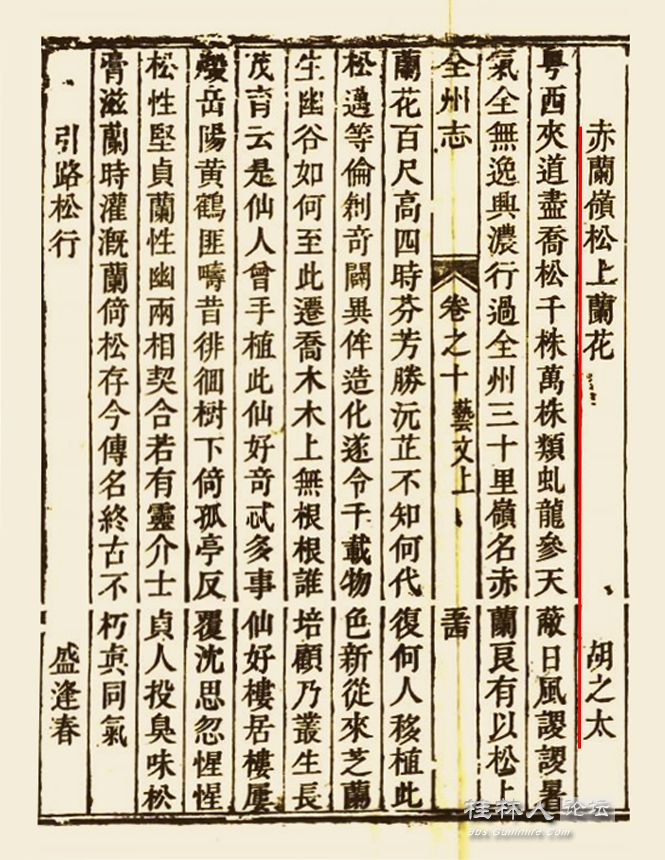 赤蘭嶺松上蘭花 胡之太
粵西夾道盡喬松千株萬株類虬龍參天蔽日風謖謖暑
氣全無逸興濃行過全州三十里嶺名赤蘭良有以松上
全州志 卷之十 藝文上
蘭花百尺高四時芬芳勝沅芷不知何代復何人移植此
松邁等倫剙奇闢異侔造化遂令千載物色新從來芝蘭
生幽谷如何至此遷喬木木上無根根誰培顧乃叢生長
茂育云是仙人曾手植此仙好奇忒多事仙好樓居樓屢
燬岳陽黃鶴匪疇昔徘徊樹下倚孤亭反覆沈思忽惺惺
松性堅貞蘭性幽兩相契合若有靈介士貞人投臭味松
膏滋蘭時灌漑蘭倚松存今傳名終古不朽眞同氣
引路松行 盛逢春
桂林人论坛
bbs.Guilinlife.com